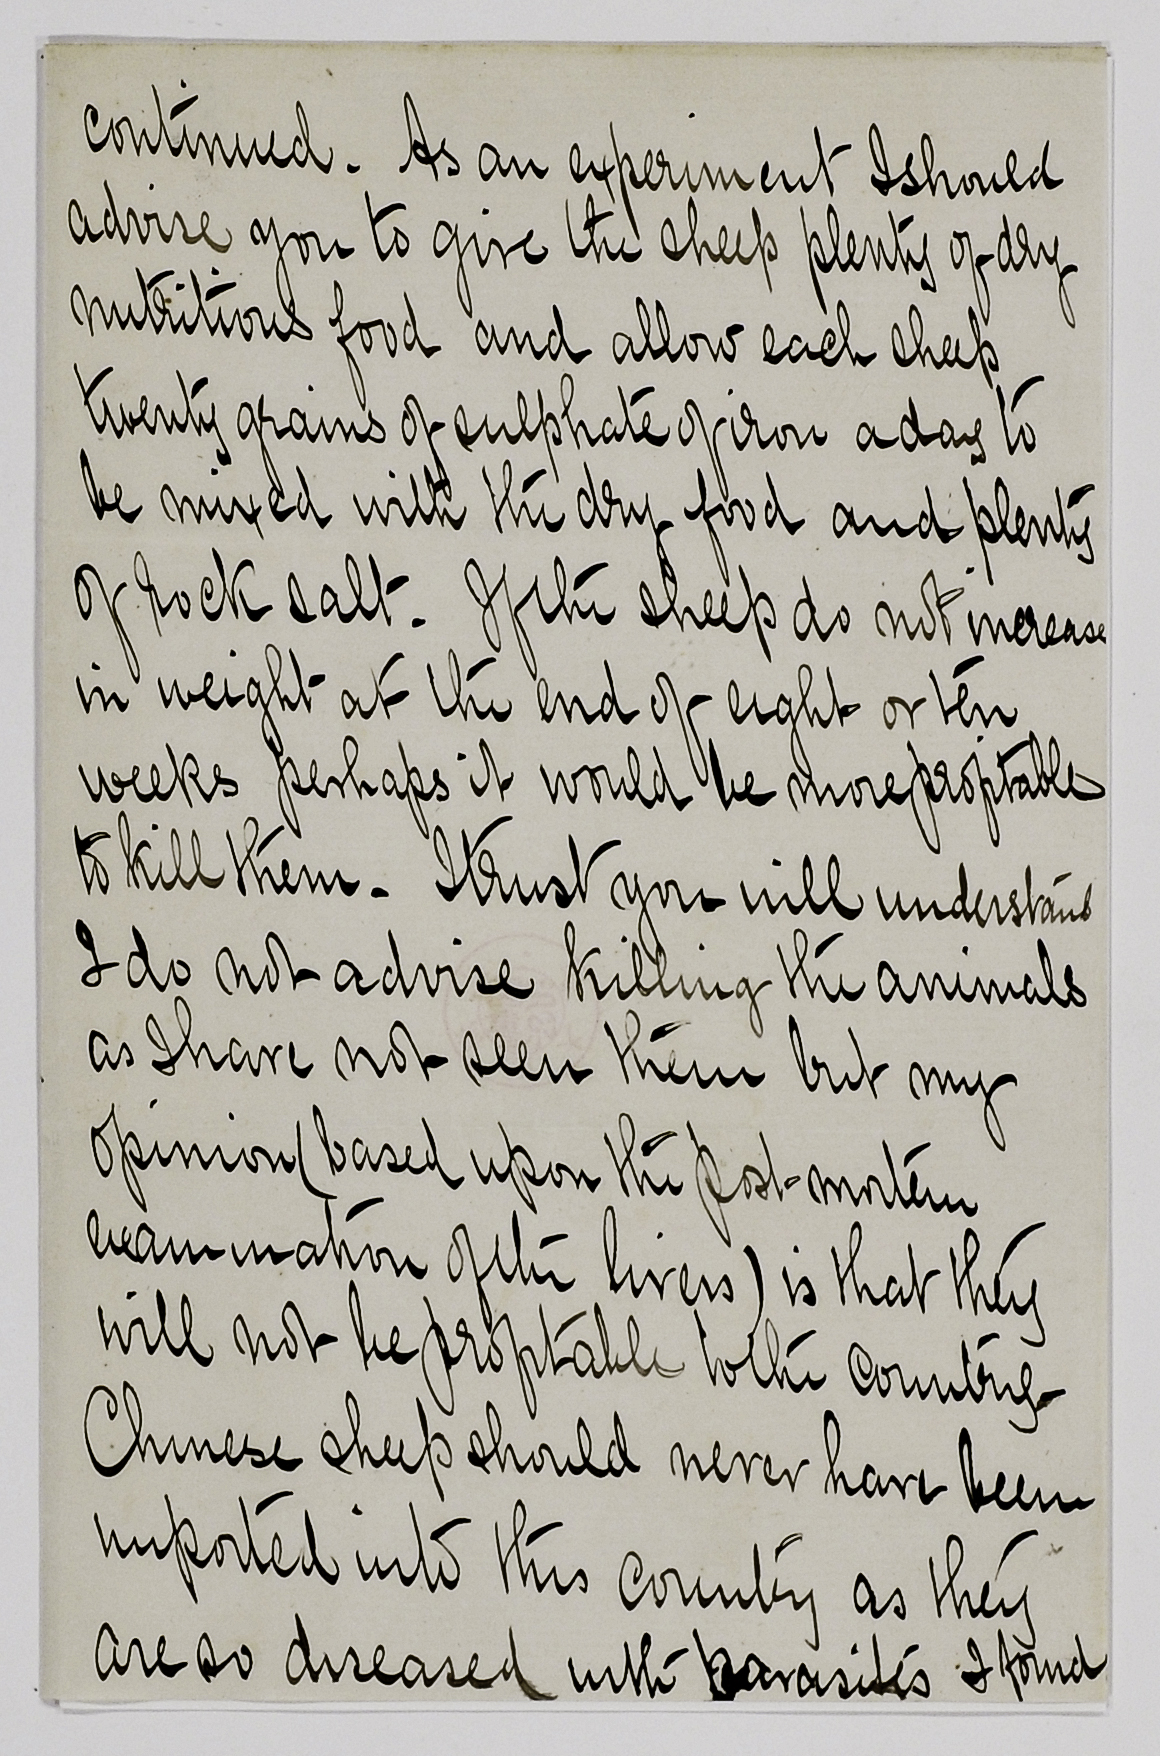 continued. As an experiment I should
advise you to give the sheep plenty of dry
nutritious food and allow each sheep
twenty grains of sulphate of iron a day to
be mixed with the dry food and plenty
of rock salt. If the sheep do not increase
in weight at the end of eight or ten
weeks perhaps it would be more profitable
to kill them. I trust you will understand
I do not advise killing the animals
as I have not seen them but my
opinion (based upon the post-mortem
examination of the livers) is that they
will not be profitable to the country
Chinese sheep should never have been
imported into this country as they
are so diseased with parasites I found